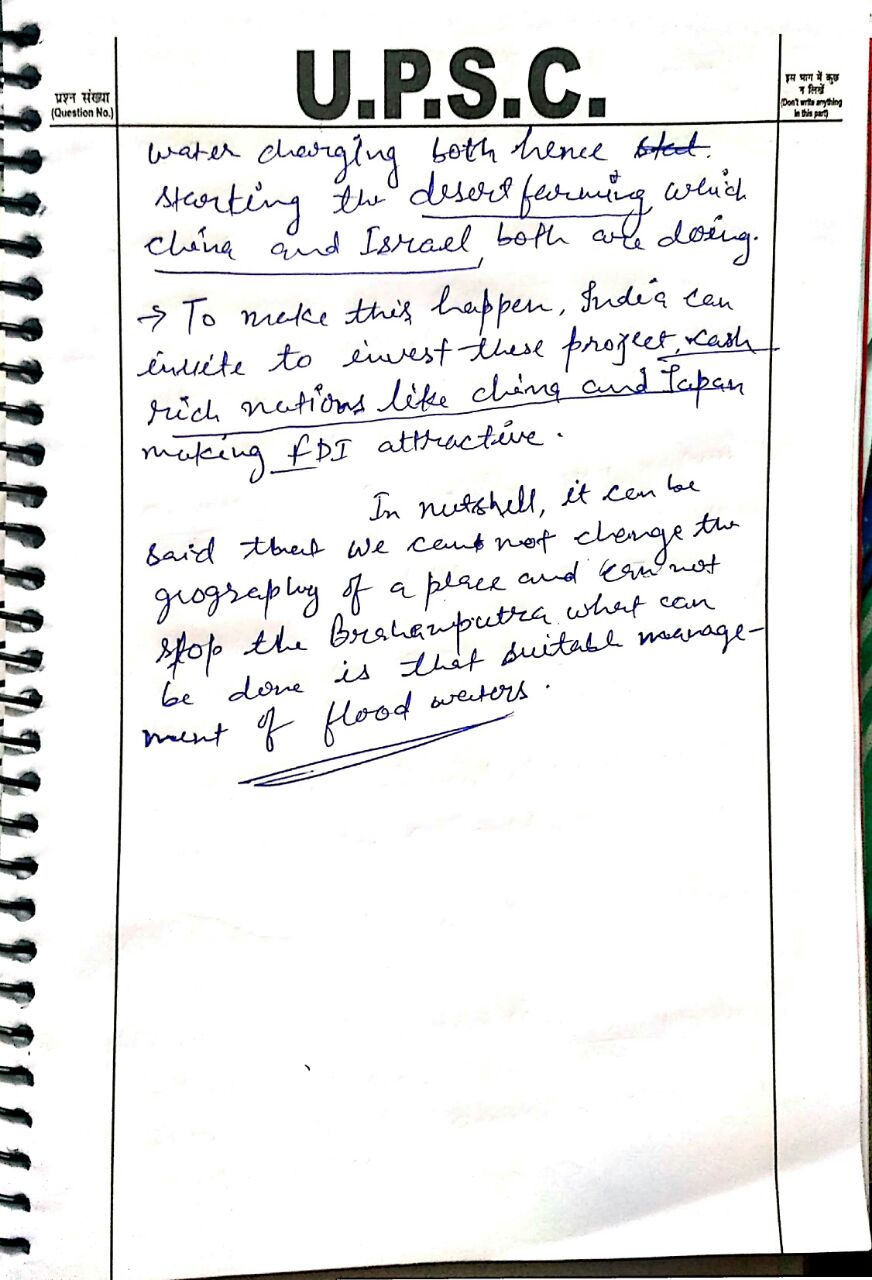 U.P.S.C.
प्रश्न संख्या
(Question No.)
इस भाग में कुछ
न लिखें
(Don't write anything
in this part)
water charging both hence
starting the desert farming which
china and Israel, both are doing.
→ To make this happen, India can
invite to invest these project, cash
rich nations like china and Japan
making FDI attractive.
In nutshell, it can be
said that we can not change the
geography of a place and can not
stop the Brahamputra what can
be done is that suitable manage-
ment of flood waters.